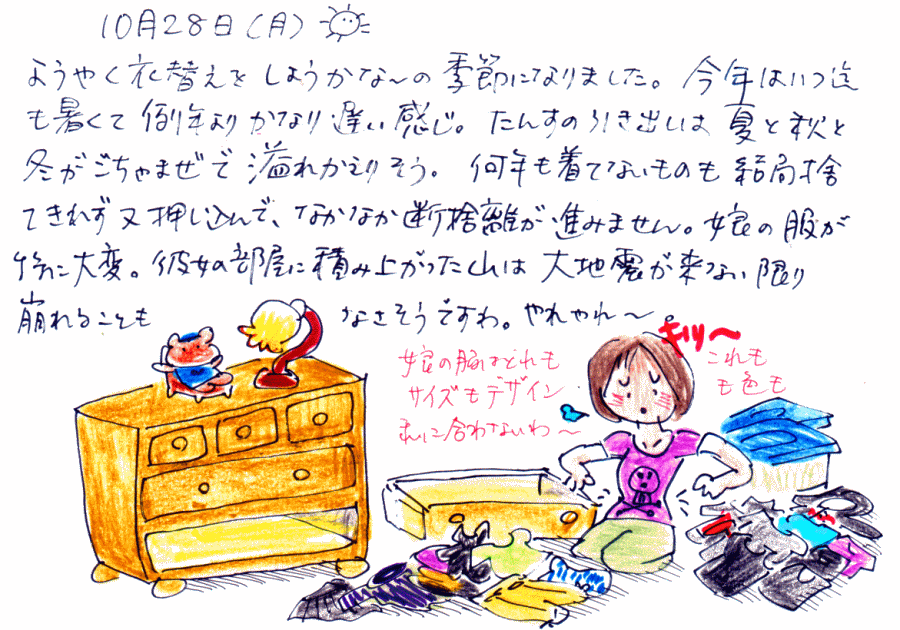 10月28日(月)
ようやく衣替えをしようかな〜の季節になりました。今年はいつ迄
も暑くて例年よりかなり遅い感じ。たんすの引き出しは夏と秋と
冬がごちゃまぜで溢れかえりそう。何年も着てないものも結局捨
てきれず又押し込んで、なかなか断捨離が進みません。娘の服が
特に大変。彼女の部屋に積み上がった山は大地震が来ない限り
崩れることも なさそうですわ。やれやれ〜。
娘の服はどれも
サイズもデザイン
私に合わないわ〜
キリ〜
これも
も色も